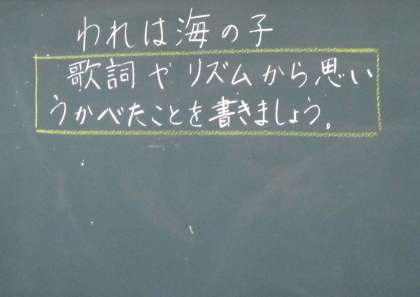 われは海の子
歌詞やリズムから思い
うかべたことを書きましょう。